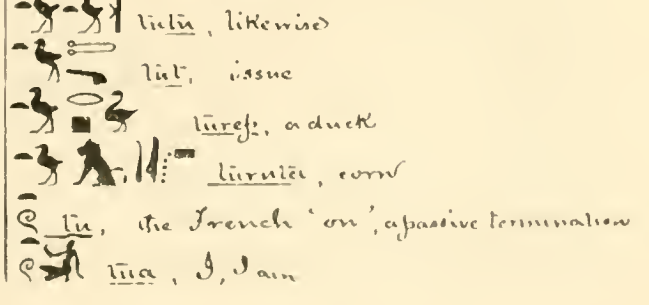 tūtū, likewise
tūt, issue
tūrep, a duck
corn
tū, the French 'on', a passive termination
tūa, I, I am